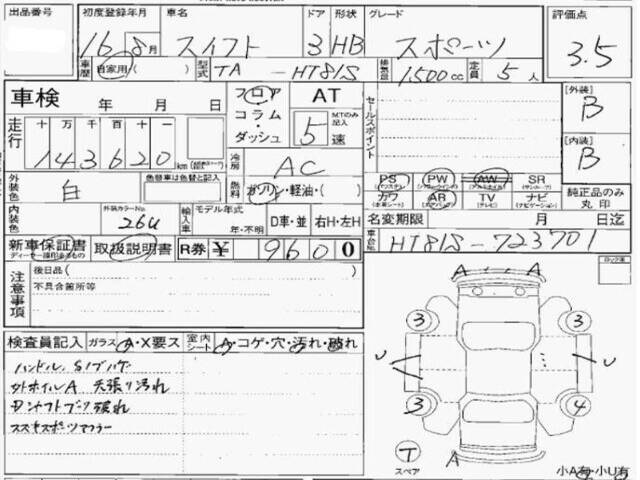 出品番号
初度登録年月 16 8月
車名 スイフト
ドア 3
形状 HB
グレード スポーツ
評価点 3.5
車歴 自家用( )
型式 TA-HT81S
排気量 1500cc
定員 5人
車検 年 月 日
フロア コラム・ダッシュ
AT
MTのみ記入 5速
セールスポイント
[外装] B
[内装] B
走行 十万千百十一
143620 km
冷房 AC
燃料 ガソリン・軽油・( )
外装色 白
色替車は色替と記入
PS PW AW SR
カワ AR TV ナビ
純正品のみ丸印
内装色
外装カラーNo. 26U
輸入車 モデル年式 年・不明
D車・並 右H・左H
名変期限 月 日迄
新車保証書
取扱説明書
R券 ¥ 9600
車台No. HT81S-723701
注意事項
後日品( )
不具合箇所等
検査員記入 ガラス A・X要ス
室内シート A・コゲ・穴・汚れ・破れ
外ホイルA 天張り汚れ
A A
3 3
U U
3 4
T
スペア
A
小A有・小U有